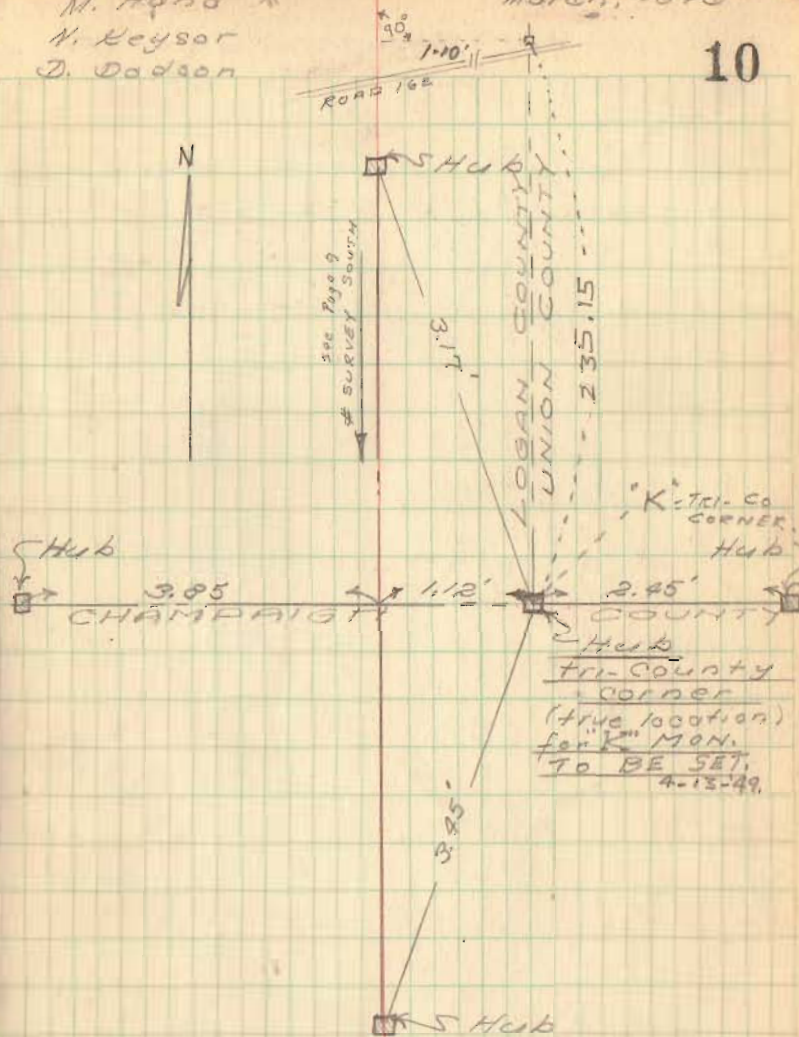 N. Keysor
D. Dodson
10
90°
1.10'
ROAD 162
N
Hub
see Page 9
# SURVEY SOUTH
3.17'
LOGAN COUNTY
UNION COUNTY
235.15
"K" TRI-CO
CORNER.
Hub
Hub
3.85
1.12'
2.45'
CHAMPAIGN COUNTY
Hub
tri-County
corner
(true location)
for "K" MON.
TO BE SET.
4-13-49.
3.85'
Hub